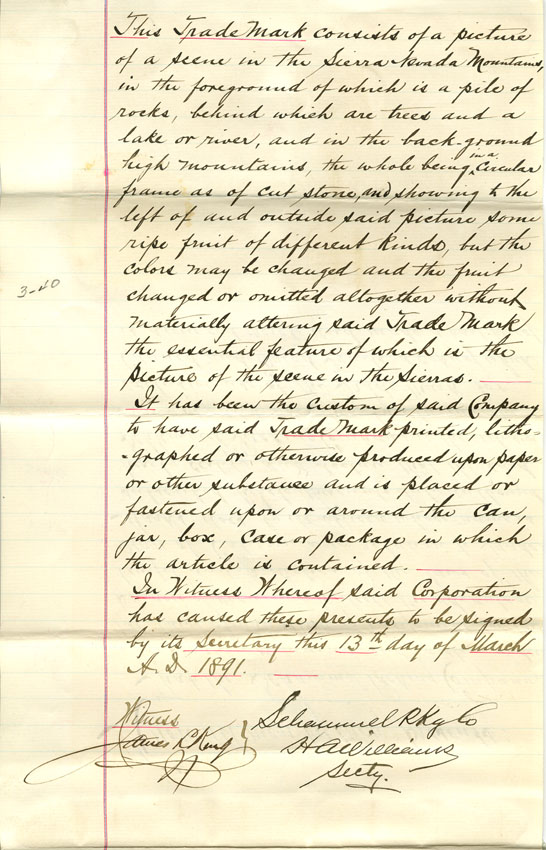 This Trade Mark consists of a picture
of a scene in the Sierra Nevada Mountains,
in the foreground of which is a pile of
rocks, behind which are trees and a
lake or river, and in the back-ground
high mountains, the whole being in a Circular
frame as of cut stone, and showing to the
left of and outside said picture some
ripe fruit of different kinds, but the
colors may be changed and the fruit
3-40
changed or omitted altogether without
materially altering said Trade Mark
the essential feature of which is the
picture of the scene in the Sierras.
It has been the custom of said Company
to have said Trade Mark printed, litho-
-graphed or otherwise produced upon paper
or other substance and is placed or
fastened upon or around the can,
jar, box, case or package in which
the article is contained.
In Witness Whereof said Corporation
has caused these presents to be signed
by its Secretary this 13th day of March
A. D. 1891.
Witness
James King
Co
H A Williams
Secty.